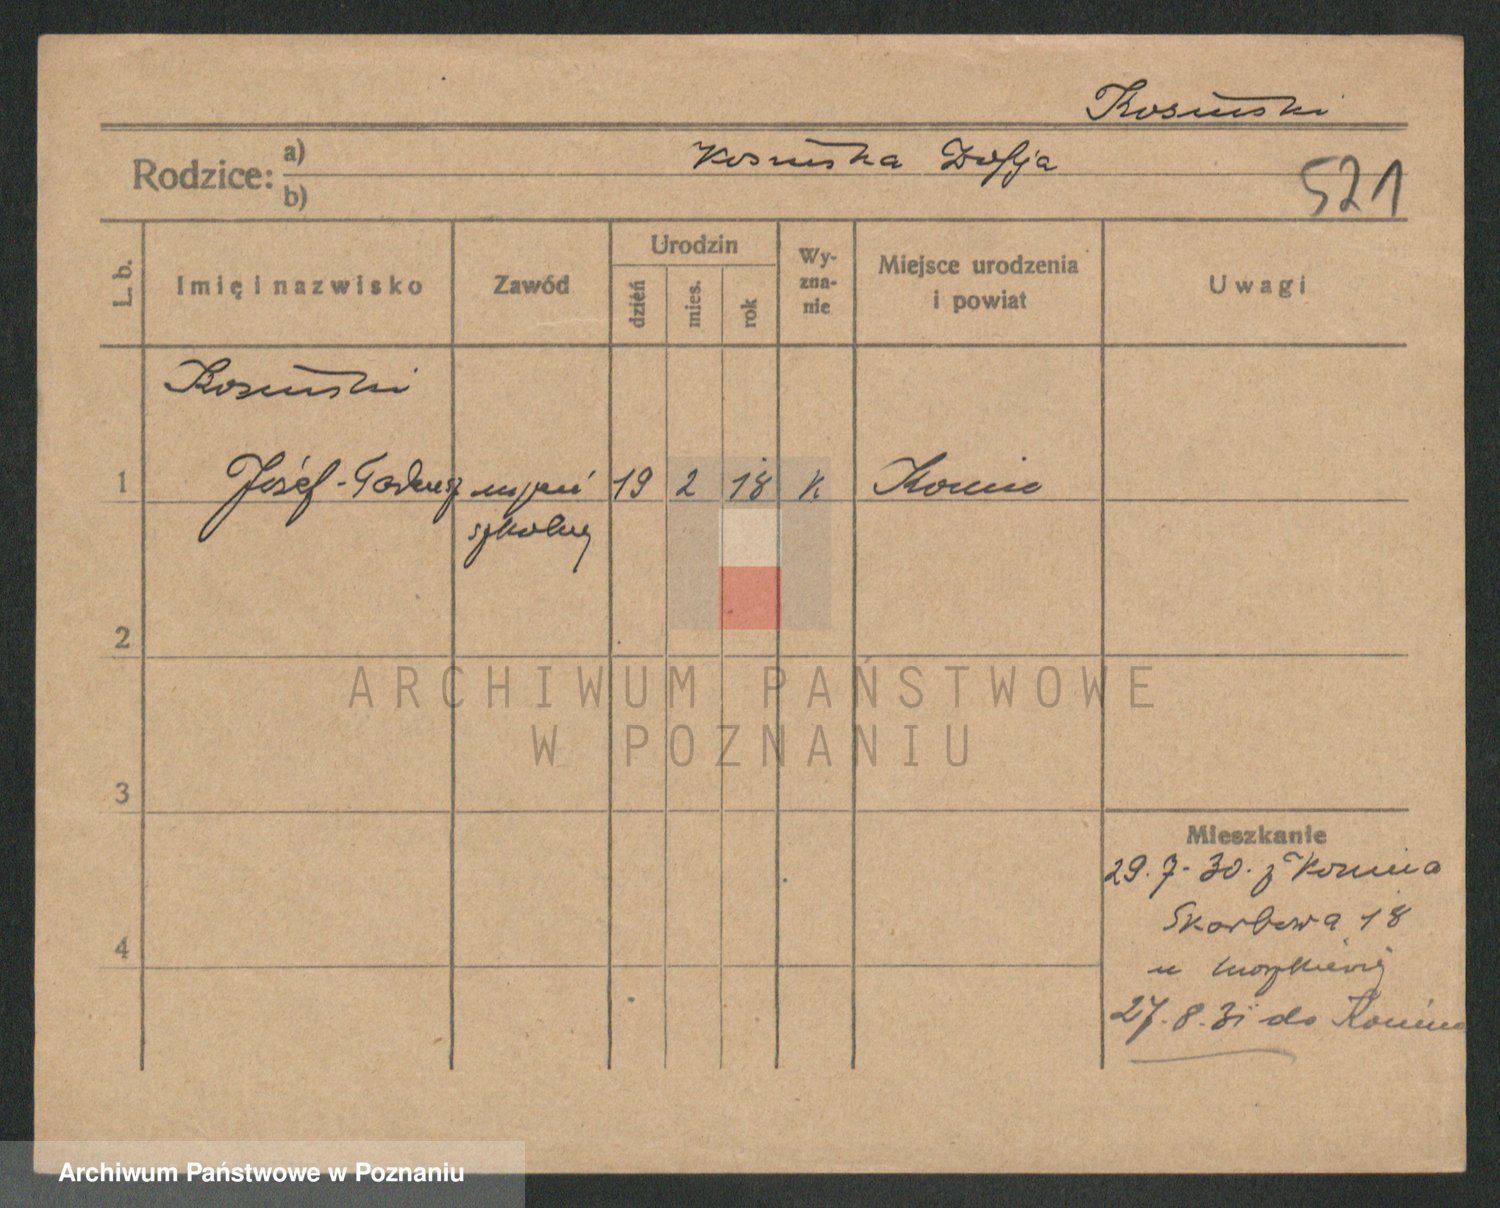 Kosiński
Rodzice: a) Kosińska Zofja
b)
521
L. b. Imię i nazwisko Zawód Urodzin dzień mies. rok Wyznanie Miejsce urodzenia i powiat Uwagi
Kosiński
1 Józef-Tadeusz 19 2 18 K Konin
szkolny
2
ARCHIWUM PAŃSTWOWE
W POZNANIU
3
Mieszkanie
29.7.30. z Konina
Skarbowa 18
4
u
27.8.31 do Konina
Archiwum Państwowe w Poznaniu